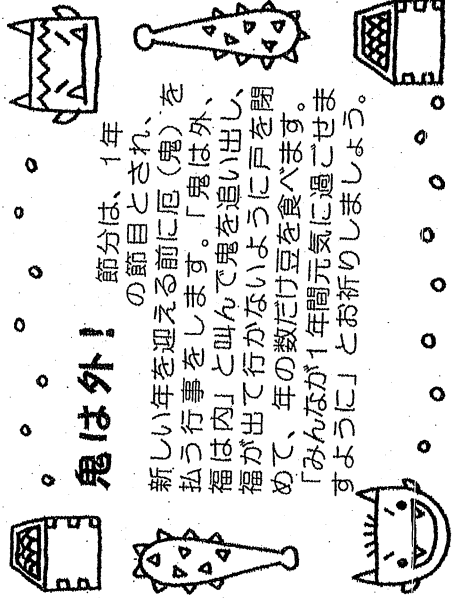 鬼は外！
節分は、1年
の節目とされ、
新しい年を迎える前に厄（鬼）を
払う行事をします。「鬼は外、
福は内」と叫んで鬼を追い出し、
福が出て行かないように戸を閉
めて、年の数だけ豆を食べます。
「みんなが1年間元気に過ごせま
すように」とお祈りしましょう。